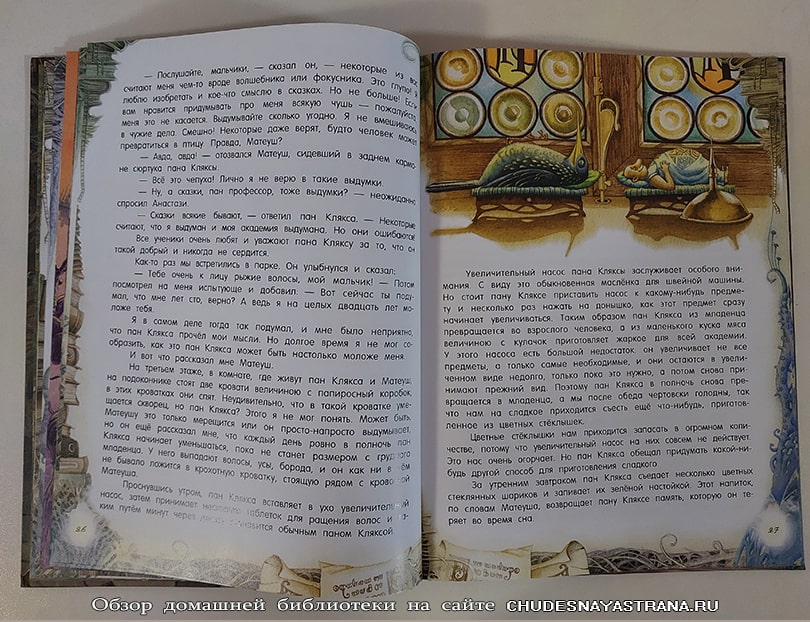 — Послушайте, мальчики, — сказал он, — некоторые из вас
считают меня чем-то вроде волшебника или фокусника. Это глупо! Я
люблю изобретать и кое-что смыслю в сказках. Но не больше! Если
вам нравится придумывать про меня всякую чушь — пожалуйста,
меня это не касается. Выдумывайте сколько угодно. Я не вмешиваюсь
в чужие дела. Смешно! Некоторые даже верят, будто человек может
превратиться в птицу. Правда, Матеуш?
— Авда, авда! — отозвался Матеуш, сидевший в заднем карма-
не сюртука пана Кляксы.
— Всё это чепуха! Лично я не верю в такие выдумки.
— Ну, а сказки, пан профессор, тоже выдумки? — неожиданно
спросил Анастази.
— Сказки всякие бывают, — ответил пан Клякса. — Некоторые
считают, что я выдуман и моя академия выдумана. Но они ошибаются!
Все ученики очень любят и уважают пана Кляксу за то, что он
такой добрый и никогда не сердится.
Как-то раз мы встретились в парке. Он улыбнулся и сказал:
— Тебе очень к лицу рыжие волосы, мой мальчик! — Потом
посмотрел на меня испытующе и добавил: — Вот сейчас ты поду-
мал, что мне лет сто, верно? А ведь я на целых двадцать лет мо-
ложе тебя.
Я в самом деле тогда так подумал, и мне было неприятно,
что пан Клякса прочёл мои мысли. Но долгое время я не мог со-
образить, как это пан Клякса может быть настолько моложе меня.
И вот что рассказал мне Матеуш.
На третьем этаже, в комнате, где живут пан Клякса и Матеуш,
на подоконнике стоят две кровати величиною с папиросный коробок,
в этих кроватках они спят. Неудивительно, что в такой кроватке уме-
щается скворец, но пан Клякса? Этого я не мог понять. Может быть,
Матеушу это только мерещится или он просто-напросто выдумывает,
но он ещё рассказал мне, что каждый день ровно в полночь пан
Клякса начинает уменьшаться, пока не станет размером с грудного
младенца. У него выпадают волосы, усы, борода, и он как ни в чём
не бывало ложится в крохотную кроватку, стоящую рядом с кроваткой
Матеуша.
Проснувшись утром, пан Клякса вставляет в ухо увеличительный
насос, затем принимает несколько таблеток для ращения волос и та-
ким путём минут через становится обычным паном Кляксой.
26
Увеличительный насос пана Кляксы заслуживает особого вни-
мания. С виду это обыкновенная маслёнка для швейной машины.
Но стоит пану Кляксе приставить насос к какому-нибудь предме-
ту и несколько раз нажать на донышко, как этот предмет сразу
начинает увеличиваться. Таким образом пан Клякса из младенца
превращается во взрослого человека, а из маленького куска мяса
величиною с кулачок приготовляет жаркое для всей академии.
У этого насоса есть большой недостаток: он увеличивает не все
предметы, а только самые необходимые, и они остаются в увели-
ченном виде недолго, только пока это нужно, а потом снова при-
нимают прежний вид. Поэтому пан Клякса в полночь снова пре-
вращается в младенца, а мы после обеда чертовски голодны, так
что нам на сладкое приходится съесть ещё что-нибудь, приготов-
ленное из цветных стёклышек.
Цветные стёклышки нам приходится запасать в огромном коли-
честве, потому что увеличительный насос на них совсем не действует.
Это нас очень огорчает. Но пан Клякса обещал придумать какой-ни-
будь другой способ для приготовления сладкого.
За утренним завтраком пан Клякса съедает несколько цветных
стеклянных шариков и запивает их зелёной настойкой. Этот напиток,
по словам Матеуша, возвращает пану Кляксе память, которую он те-
ряет во время сна.
27
Обзор домашней библиотеки на сайте CHUDESNAYASTRANA.RU